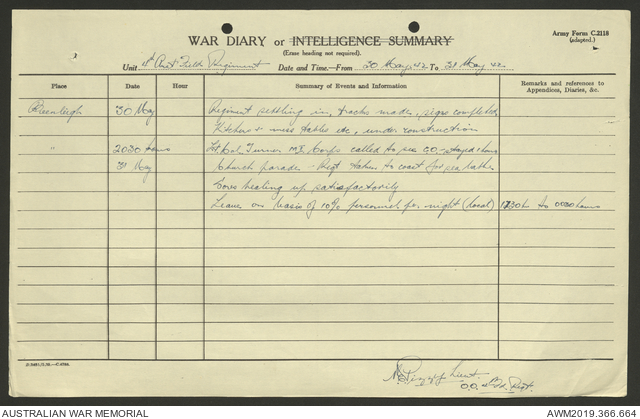 Army Form C.2118
(adapted.)
WAR DIARY or INTELLIGENCE SUMMARY
(Erase heading not required).
Unit 4th Aust Field Regiment Date and Time.—From 30 May 42 To 31 May 42.
Place Date Hour Summary of Events and Information Remarks and references to Appendices, Diaries, &c.
Beenleigh 30 May Regiment settling in, tracks made, completed
Kitchens mess tables etc, under construction
" 2030 hours Lt. Col. Turner Corps called to see CO - stayed 1 hour
31 May Church parade - Regt taken to coast for sea bathe
Cores healing up satisfactorily
Leave on basis of 10% personnel per night (local) 1730 hrs to 0030 hours
Lieut.
Fd. Regt.
AUSTRALIAN WAR MEMORIAL AWM2019.366.664